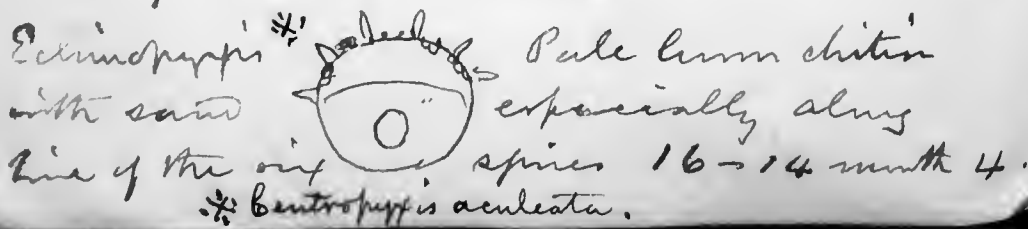 Echinopyxis ※ Pale brown chitin
with sand especially along
line of the six spines 16–14 mouth 4.
※ Centropyxis aculeata.